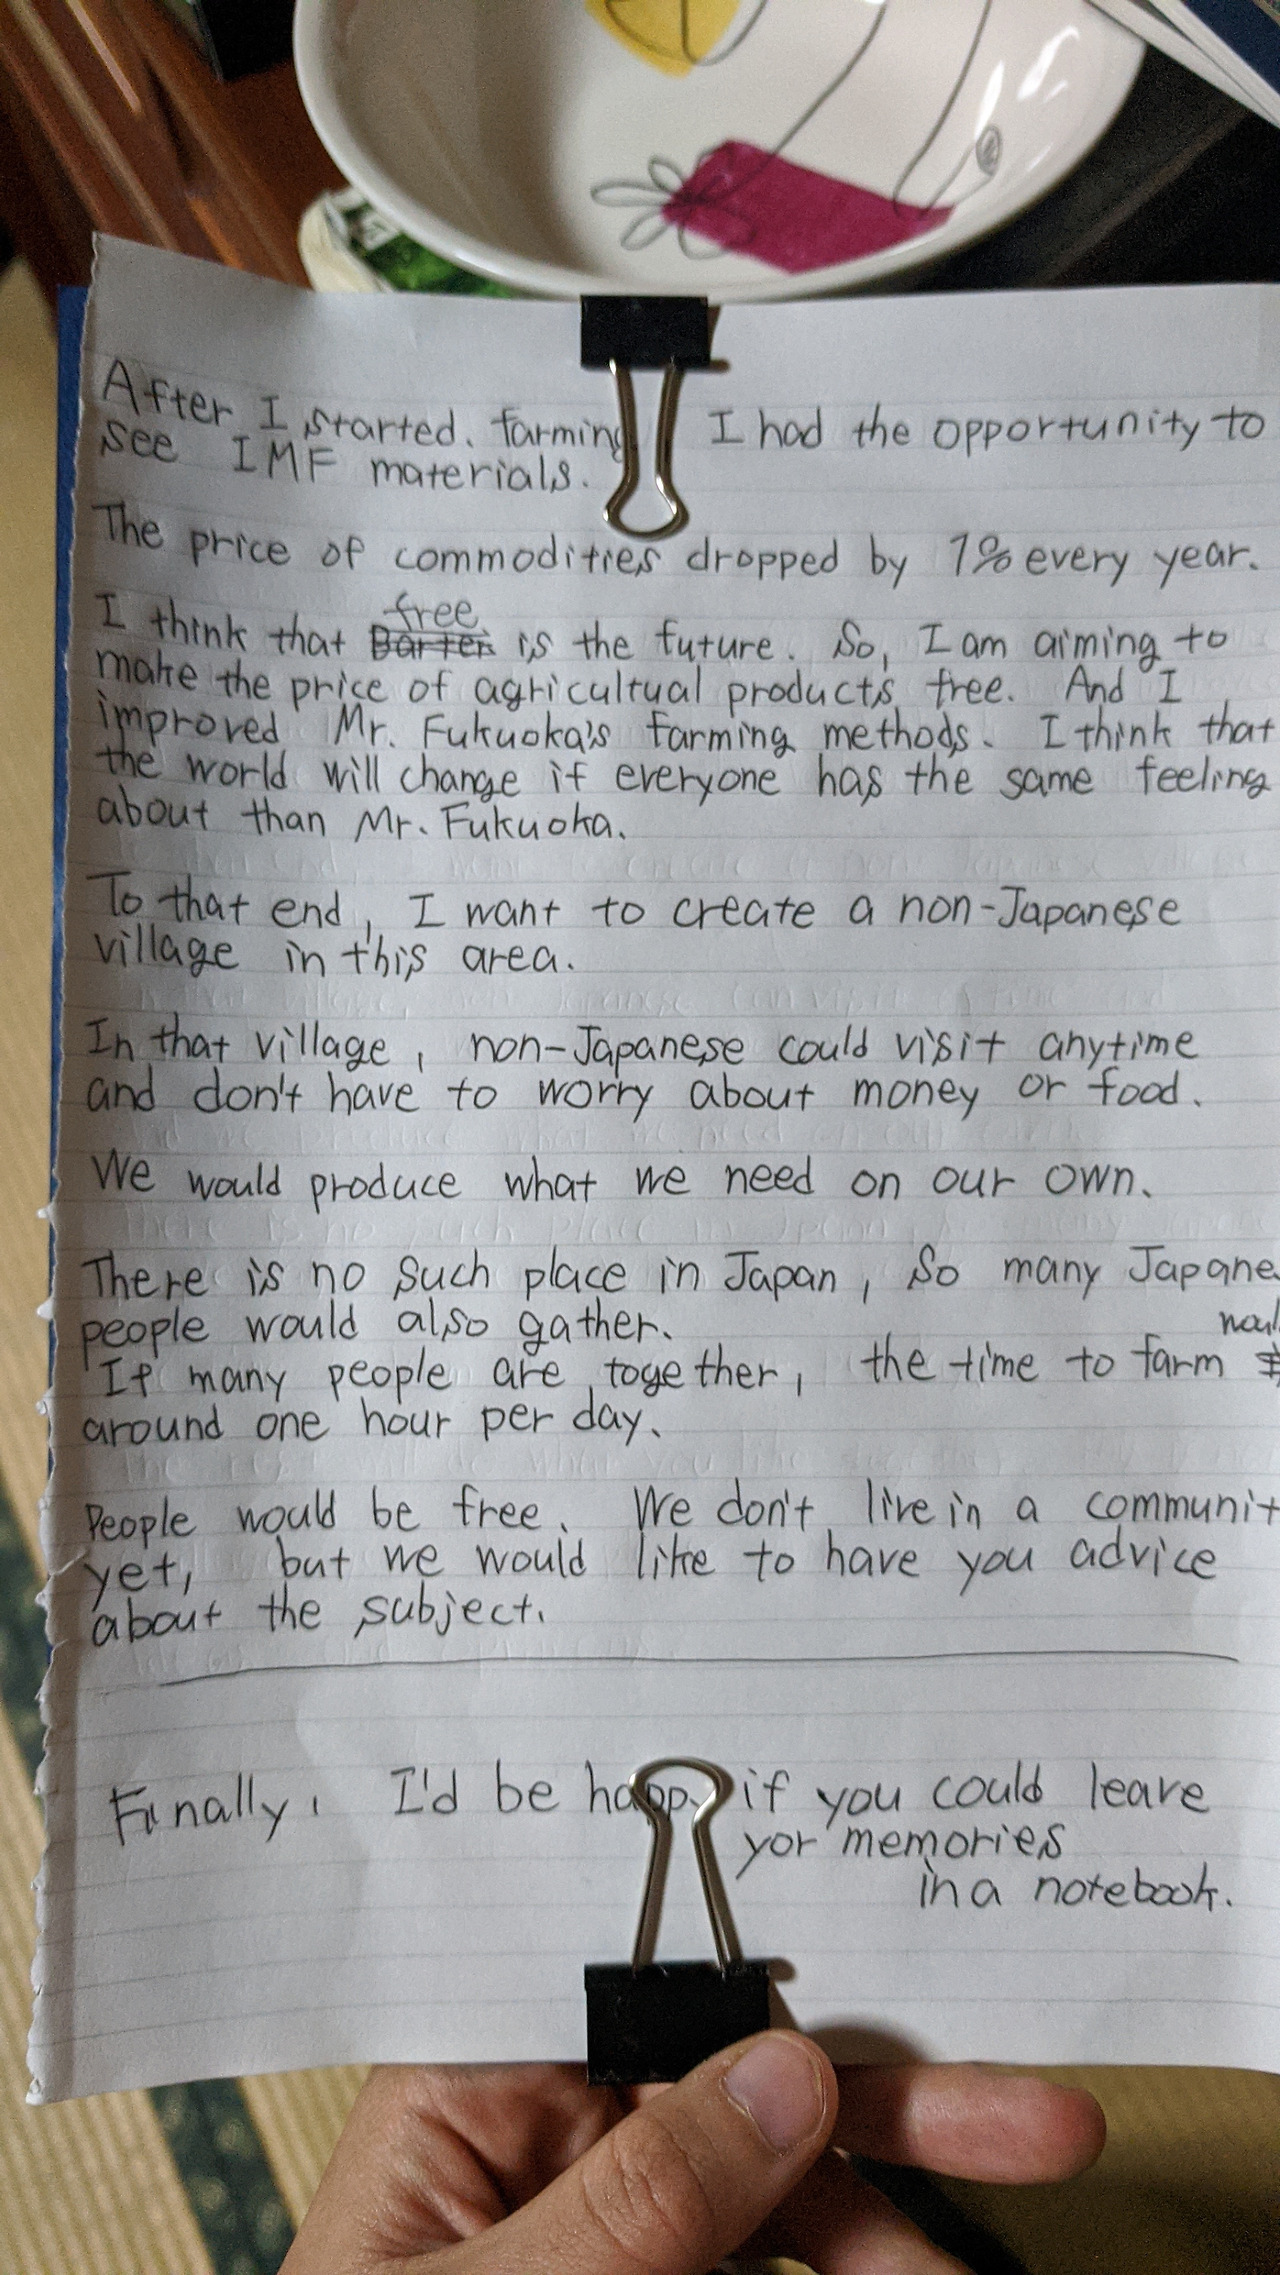 After I started. farming I had the opportunity to
see IMF materials.
The price of commodities dropped by 1% every year.
free
I think that Barter is the future. So, I am aiming to
make the price of agricultual products free. And I
improved Mr. Fukuoka's farming methods. I think that
the world will change if everyone has the same feeling
about than Mr. Fukuoka.
To that end, I want to create a non-Japanese
village in this area.
In that village, non-Japanese could visit anytime
and don't have to worry about money or food.
We would produce what we need on our own.
There is no such place in Japan, So many Japane
people would also gather.
woul
If many people are together, the time to farm
around one hour per day.
People would be free. We don't live in a communit
yet, but we would like to have you advice
about the subject.
Finally, I'd be happy if you could leave
yor memories
in a notebook.